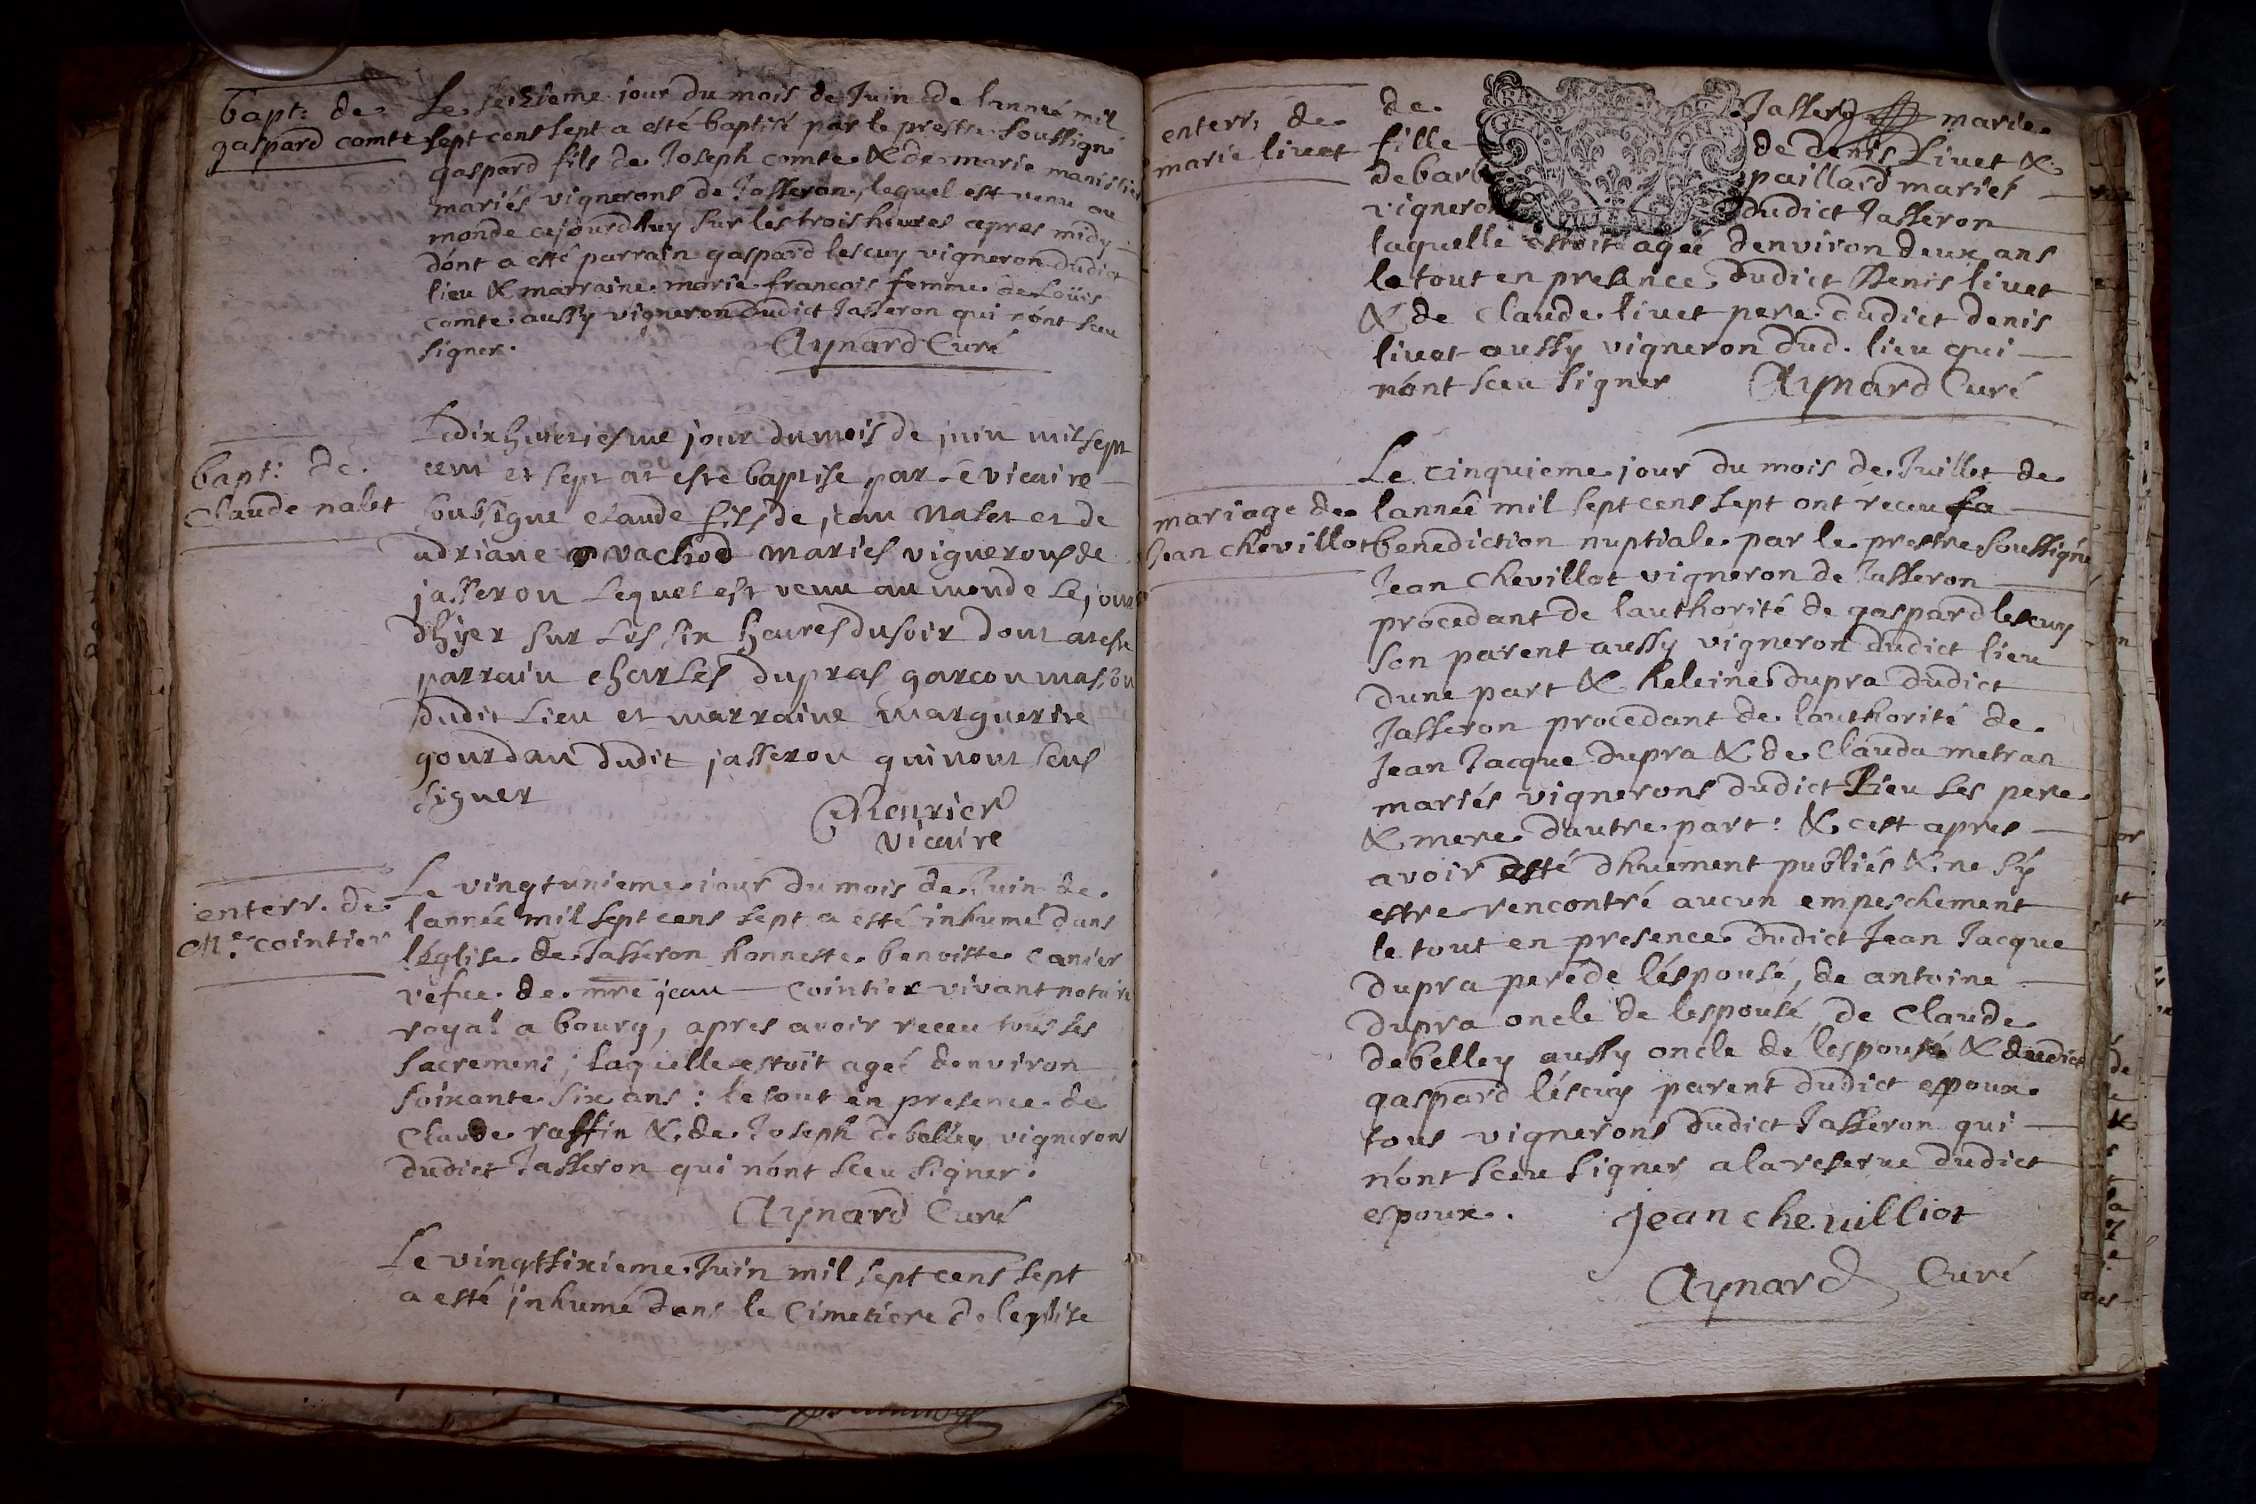 bapt: de
gaspard comte
Le seizieme jour du mois de Juin de lanneé mil
sept cens sept a esté baptisé par le prestre soussigné
gaspard fils de Joseph comte & de marie manissier
mariés vignerons de Jasseron, lequel est venu au
monde cejourdhuy sur les trois heures apres midy
dont a esté parrain gaspard lescuy vigneron dudict
lieu & marraine marie francois femme de Loüis
comte aussy vigneron dudict Jasseron qui nónt sceu
signer.
Aynard Curé
bapt: de
Claude nalet
Le dix huictiesme jour du mois de juin mil sept
cent et sept at esté baptise par Le vicaire
soubsigne claude fils de jean nalet et de
adriane vachod mariés vignerons de
jasseron Lequel est venu au monde Le jour
dhyer sur Les six heures du soir dont at esté
parrain charles dupras garcon masson
dudit Lieu et marraine marguerite
gourdan dudit jasseron qui nont sceus
signer
vicaire
enterr. de
Mr. cointier
Le vingt unieme jour du mois de Juin de
lannée mil sept cens sept a esté inhumé dans
léglise de Jasseron honneste benoiste canier
vefue de mre jean cointier vivant notaire
royal a bourg, apres avoir receu tous les
sacremens; laquelle estoit ageé denviron
soixante six ans: le tout en presence de
Claude raffin & de Joseph debelley vignerons
dudict Jasseron qui nónt sceu signer.
Aynard Curé
Le vingtsixieme Juin mil sept cens sept
a esté inhumé dans le Cimetiere de leglise
enterr. de
marie livet
de Jasseron marie
fille de denis Livet &
de barb paillard mariés
vigneron dudict Jasseron
laquelle estoit ageé denviron deux ans
le tout en presence dudict denis livet
& de claude livet pere dudict denis
livet aussy vigneron dud. lieu qui
nónt sceu signer Aynard Curé
mariage de
Jean chevillot
Le cinquieme jour du mois de Juillet de
lannéé mil sept cens sept ont receu la
benediction nuptiale par le prestre soussigné
Jean Chevillot vigneron de Jasseron
procedant de lauthorité de gaspard lescuy
son parent aussy vigneron dudict lieu
dune part & heleine dupra dudict
Jasseron procedant de lauthorité de
Jean Jacque dupra & de Clauda metran
mariés vignerons dudict Lieu ses pere
& mere dautre part: & cest apres
avoir esté dhuement publiés & ne sÿ
estre rencontré aucun empeschement
le tout en presence dudict Jean Jacque
dupra pere de léspousé, de antoine
dupra oncle de lespousé de Claude
debelley aussy oncle de lespousé & dudict
gaspard léscuy parent dudict espoux
tous vignerons dudict Jasseron qui
nónt sceu signer a la reserue dudict
espoux.
jean cheuilliot
Aynard Curé